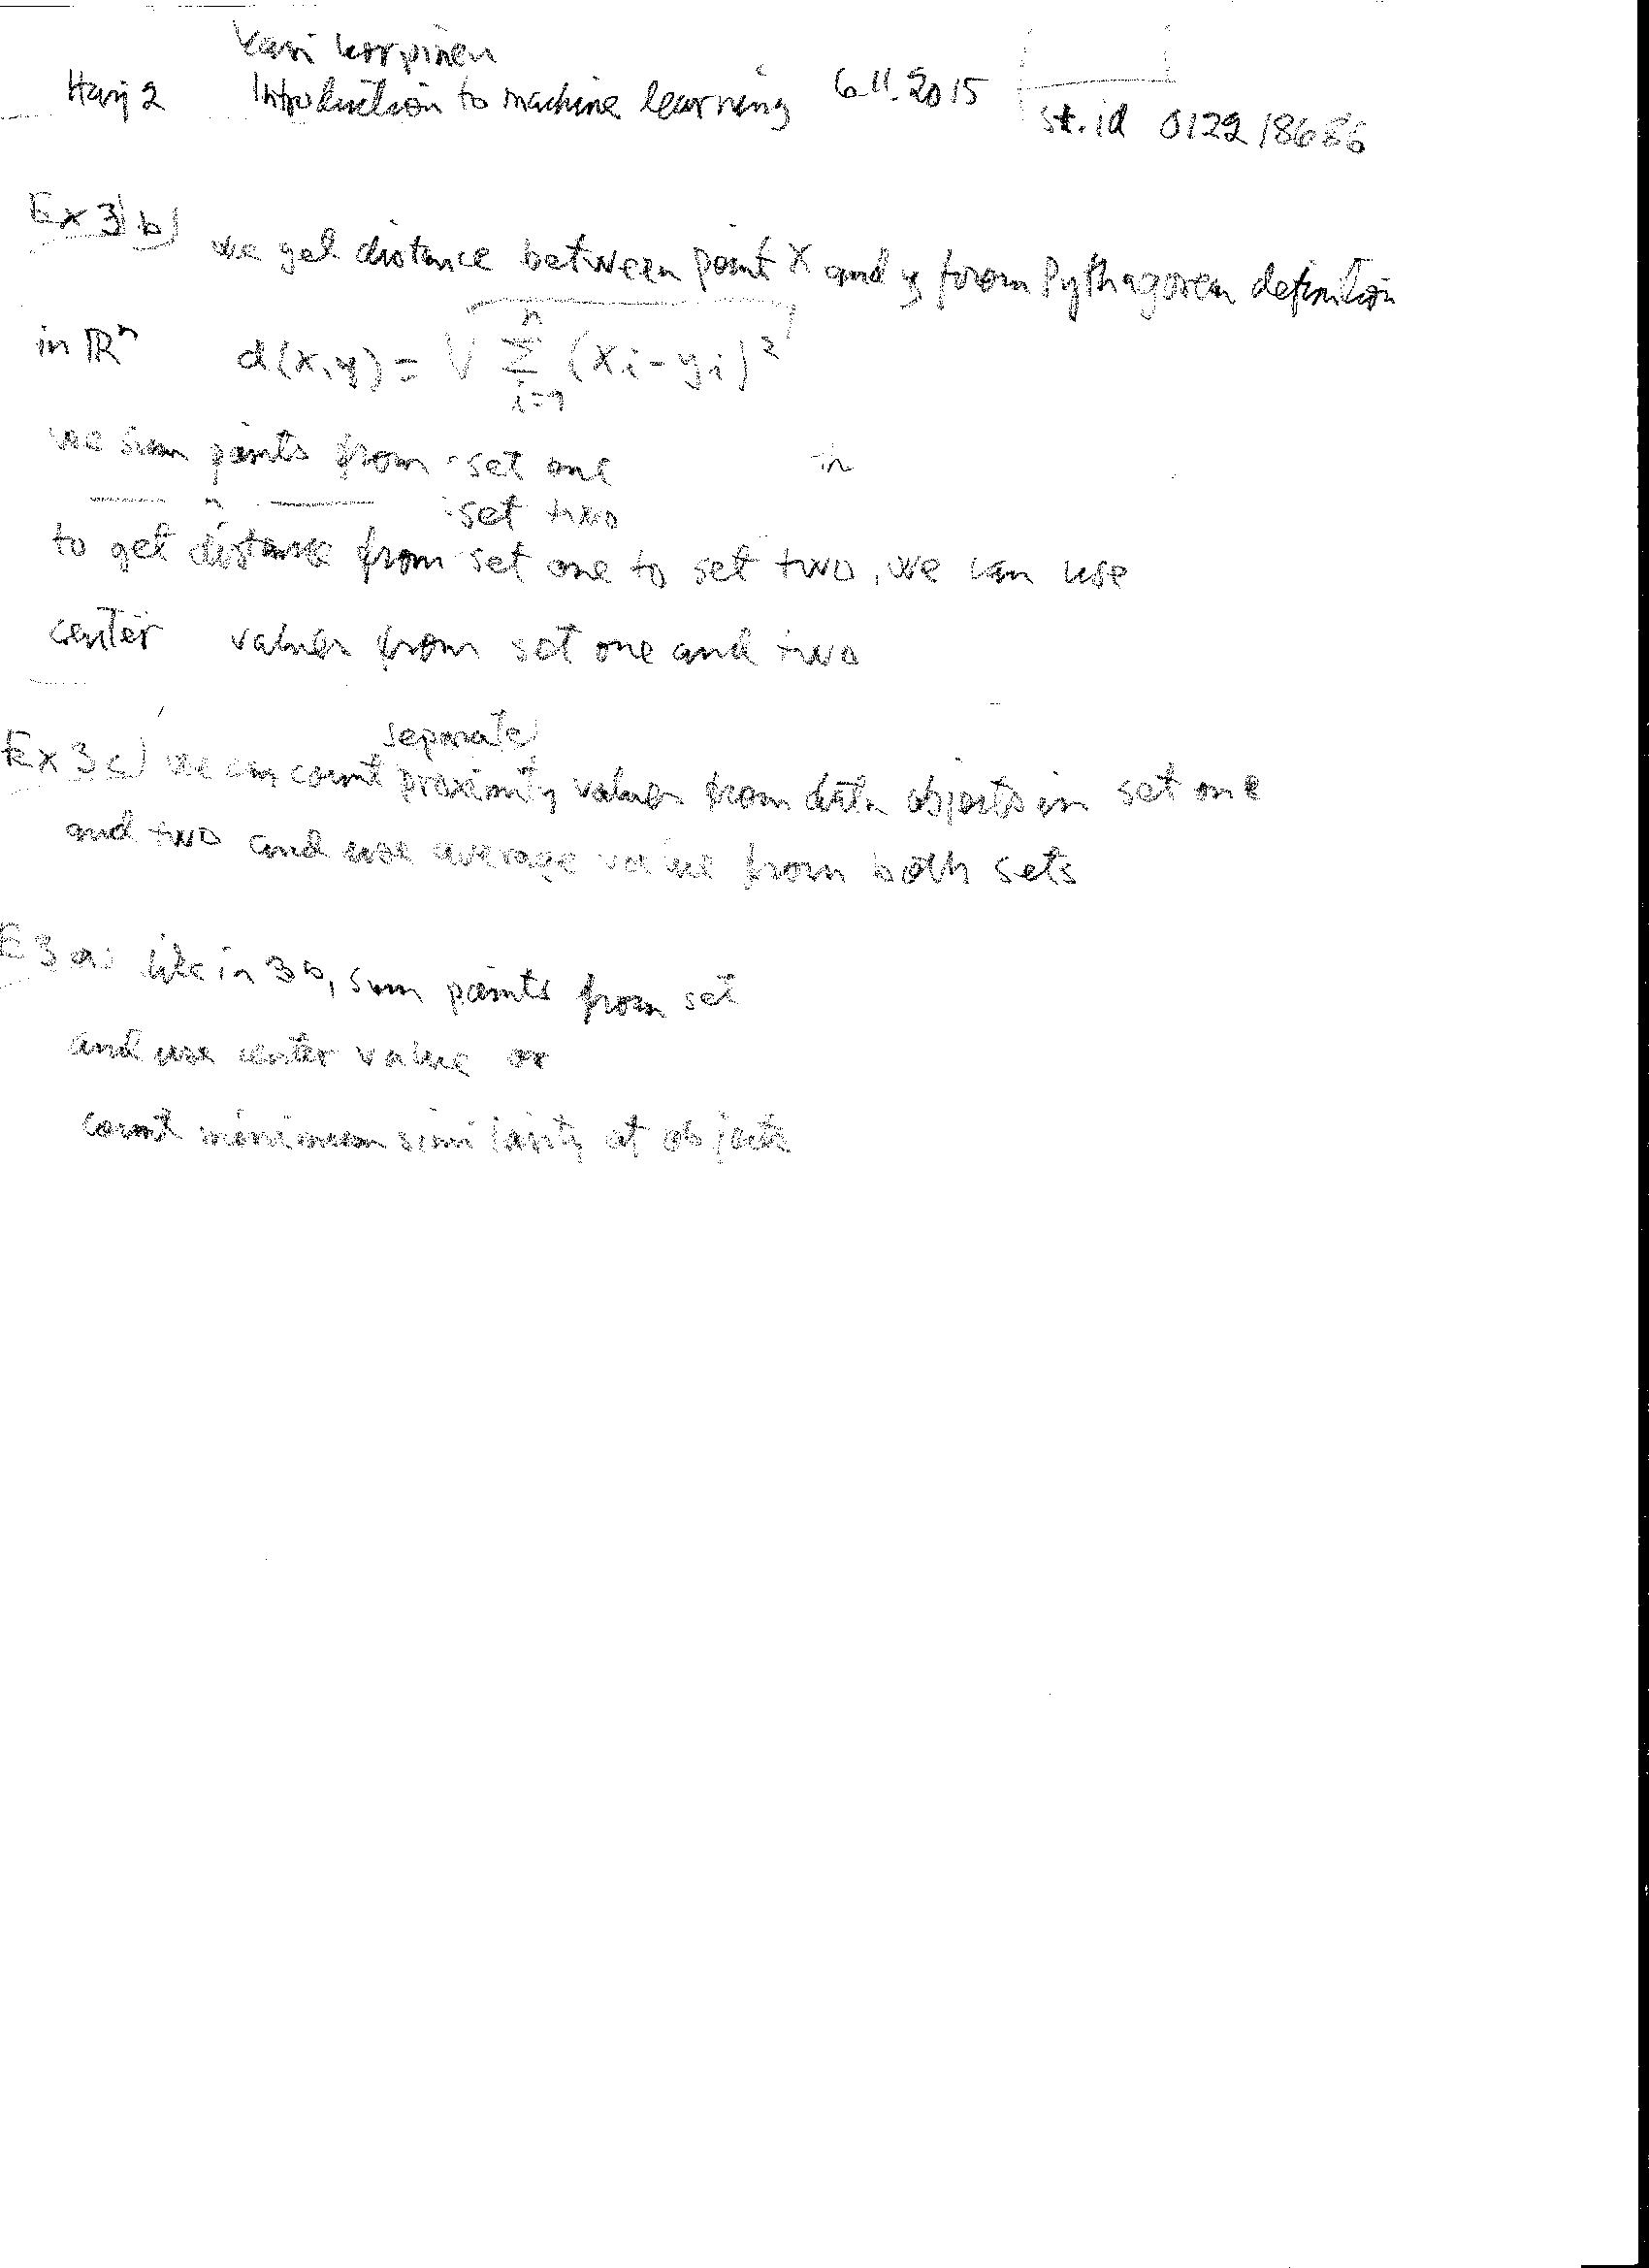 Kari Korpinen
Harj 2 Introduction to machine learning 6.11.2015
st.id 012218686
Ex 3) b) we get distance between point x and y from Pythagorean definition
in ℝⁿ d(x,y) = √ Σ_{i=1}^{n} (xi - yi)²
we sum points from set one
in
set two
to get distance from set one to set two, we can use
center values from set one and two
separate
Ex 3 c) we can count proximity values from data objects in set one
and two and use average value from both sets
E 3 a: like in 3b, sum points from set
and use center value or
count minimum similarity of objects